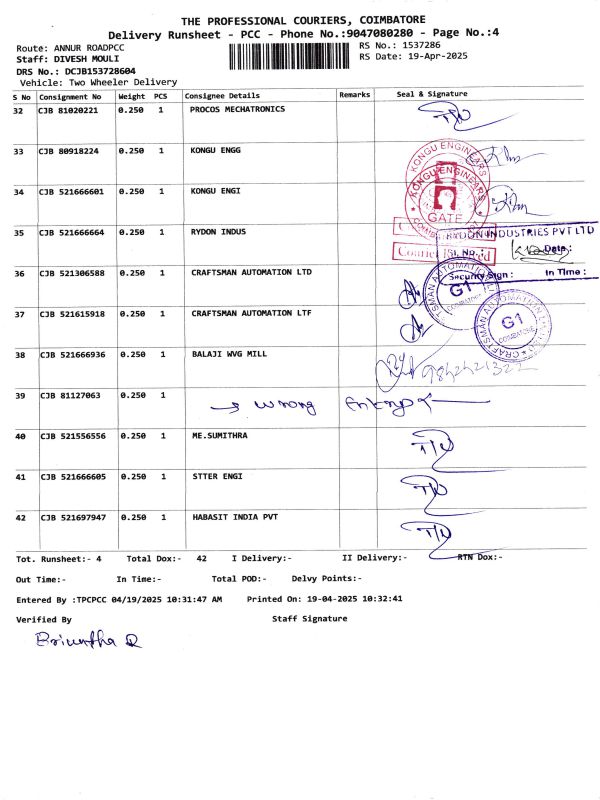 THE PROFESSIONAL COURIERS, COIMBATORE
Delivery Runsheet - PCC - Phone No.:9047080280 - Page No.:4
Route: ANNUR ROADPCC RS No.: 1537286
Staff: DIVESH MOULI RS Date: 19-Apr-2025
DRS No.: DCJB153728604
Vehicle: Two Wheeler Delivery
S No Consignment No Weight PCS Consignee Details Remarks Seal & Signature
32 CJB 81020221 0.250 1 PROCOS MECHATRONICS
33 CJB 80918224 0.250 1 KONGU ENGG
KONGU ENGINEARS
34 CJB 521666601 0.250 1 KONGU ENGI
KONGU ENGINEARS
GATE
35 CJB 521666664 0.250 1 RYDON INDUS
RYDON INDUSTRIES PVT LTD
Sl. No.: Date.:
Security Sign : In Time :
36 CJB 521306588 0.250 1 CRAFTSMAN AUTOMATION LTD
G1
COIMBATORE
37 CJB 521615918 0.250 1 CRAFTSMAN AUTOMATION LTF
G1
COIMBATORE
38 CJB 521666936 0.250 1 BALAJI WVG MILL
39 CJB 81127063 0.250 1 wrong
40 CJB 521556556 0.250 1 ME.SUMITHRA
41 CJB 521666605 0.250 1 STTER ENGI
42 CJB 521697947 0.250 1 HABASIT INDIA PVT
Tot. Runsheet:- 4 Total Dox:- 42 I Delivery:- II Delivery:- RTN Dox:-
Out Time:- In Time:- Total POD:- Delvy Points:-
Entered By :TPCPCC 04/19/2025 10:31:47 AM Printed On: 19-04-2025 10:32:41
Verified By Staff Signature